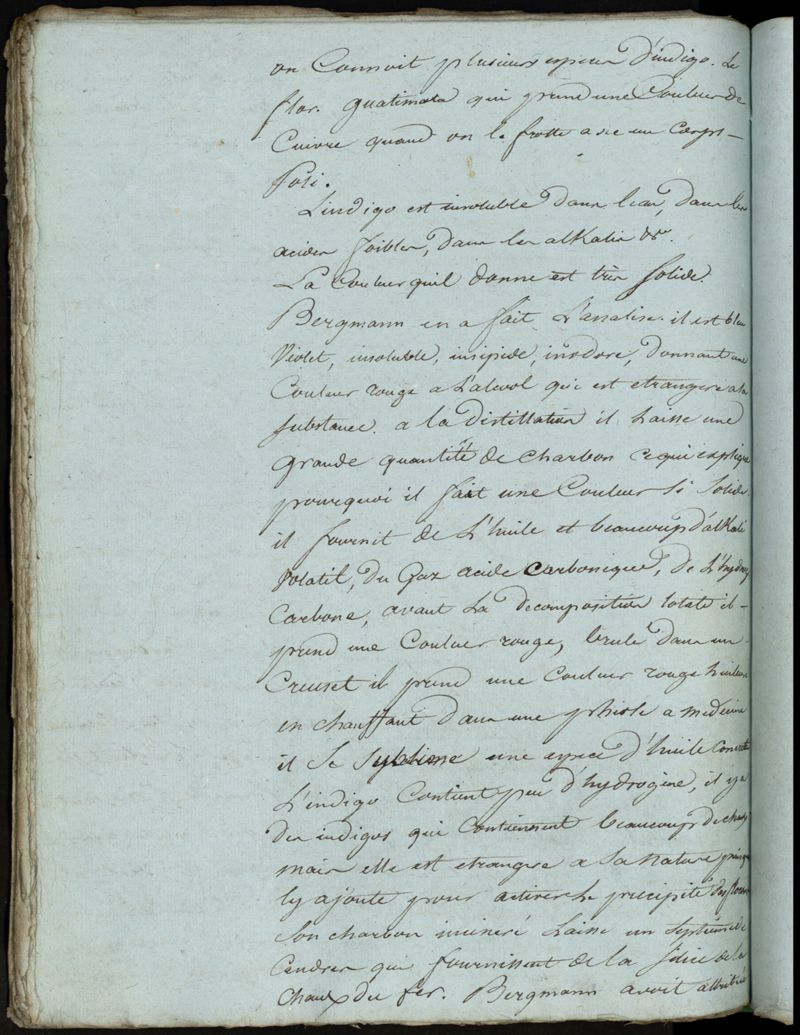 on Connoit plusieurs especes d'indigo. Le
flor. guatimala qui prend une Couleur de
Cuivre quand on le frotte avec un Corps
Poli.
L'indigo est insoluble dans l'eau, dans les
acides foibles, dans les alkalis &c.
La Couleur qu'il donne est très solide.
Bergmann en a fait L'analise. il est bleu
Violet, insoluble, insipide, inodore, donnant une
Couleur rouge a L'alcool qui est etrangere a la
substance. a la distillation il Laisse une
grande quantité de charbon ce qui explique
pourquoi il fait une Couleur si solide.
il fournit de L'huile et beaucoup d'alkali
Volatil, du Gaz acide Carbonique, de L'hydrog
Carboné, avant La decomposition totale il
prend une Couleur rouge, brulé dans un
Creuset il prend une Couleur rouge
en chauffant dans une phiole a medecine
il Se Sublime une espece d'huile Concrete
L'indigo Contient peu d'hydrogène, il y a
des indigos qui Contiennent beaucoup de chaux
mais elle est etrangere a Sa nature
l'y ajoute pour activer Le precipité des
Son charbon incineré Laisse un Septieme de
Cendres qui fournissent de la Silice de la
chaux du fer. Bergmann avoit attribué